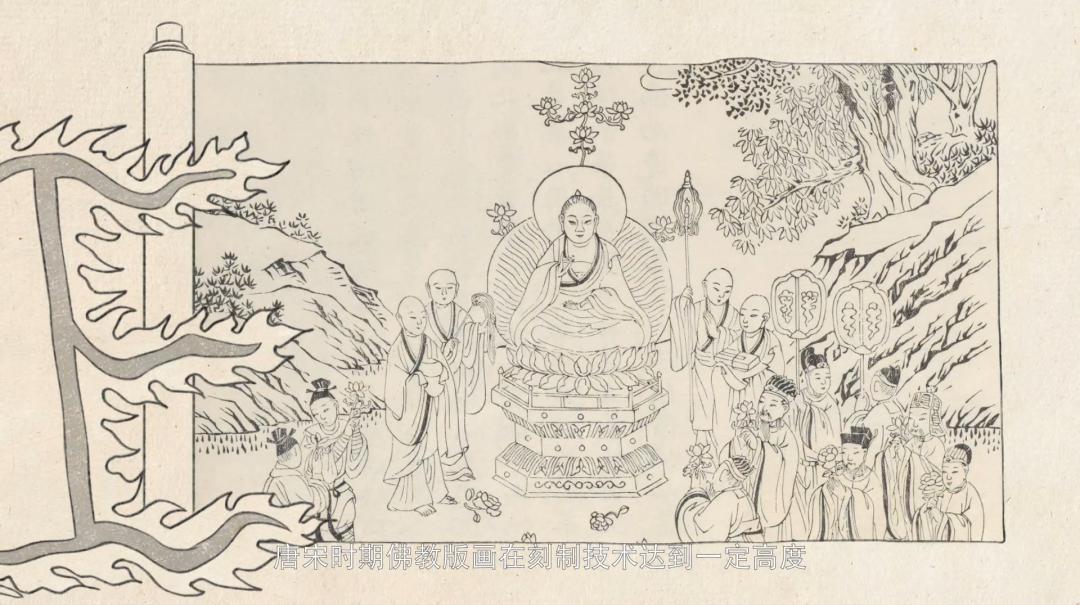 唐宋时期佛教版画在刻制技术达到一定高度